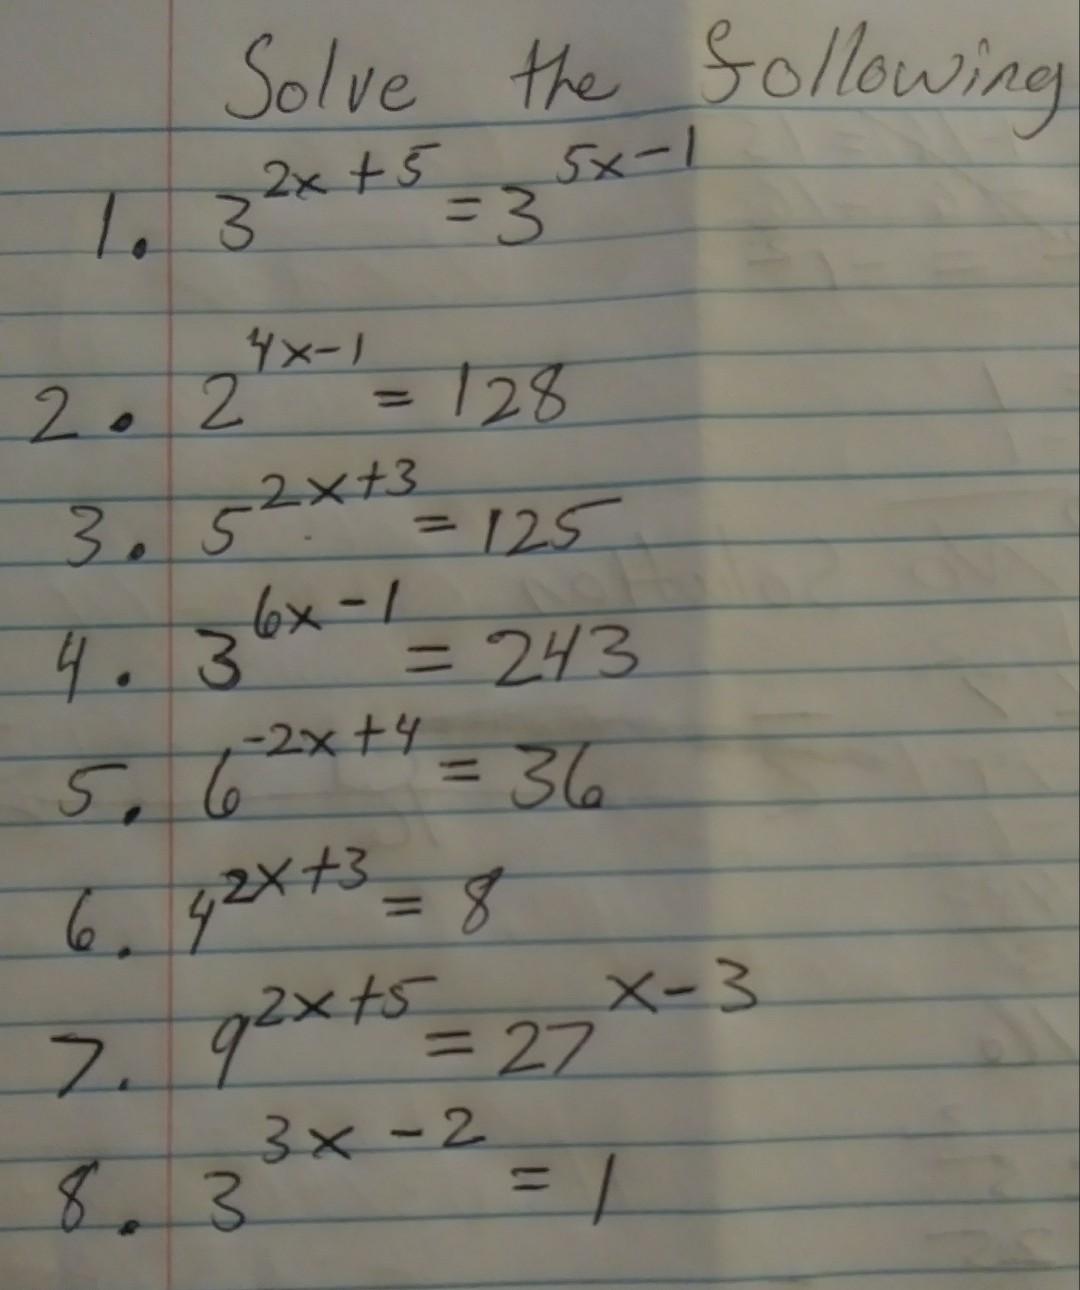 Solve the following
1. 3^{2x+5} = 3^{5x-1}
2. 2^{4x-1} = 128
3. 5^{2x+3} = 125
4. 3^{6x-1} = 243
5. 6^{-2x+4} = 36
6. 4^{2x+3} = 8
7. 9^{2x+5} = 27^{x-3}
8. 3^{3x-2} = 1